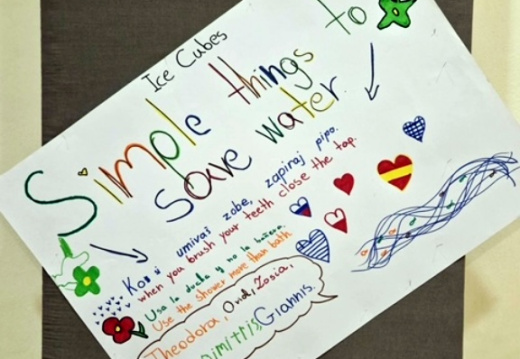 Ice Cubes
Simple things to
save water.
Ko si umivaš zobe, zapiraj pipo.
when you brush your teeth close the tap.
Usa la ducha y no la bañera.
Use the shower more than bath
Theodora, Ondi, Zosia,
Dimitris, Giannis.